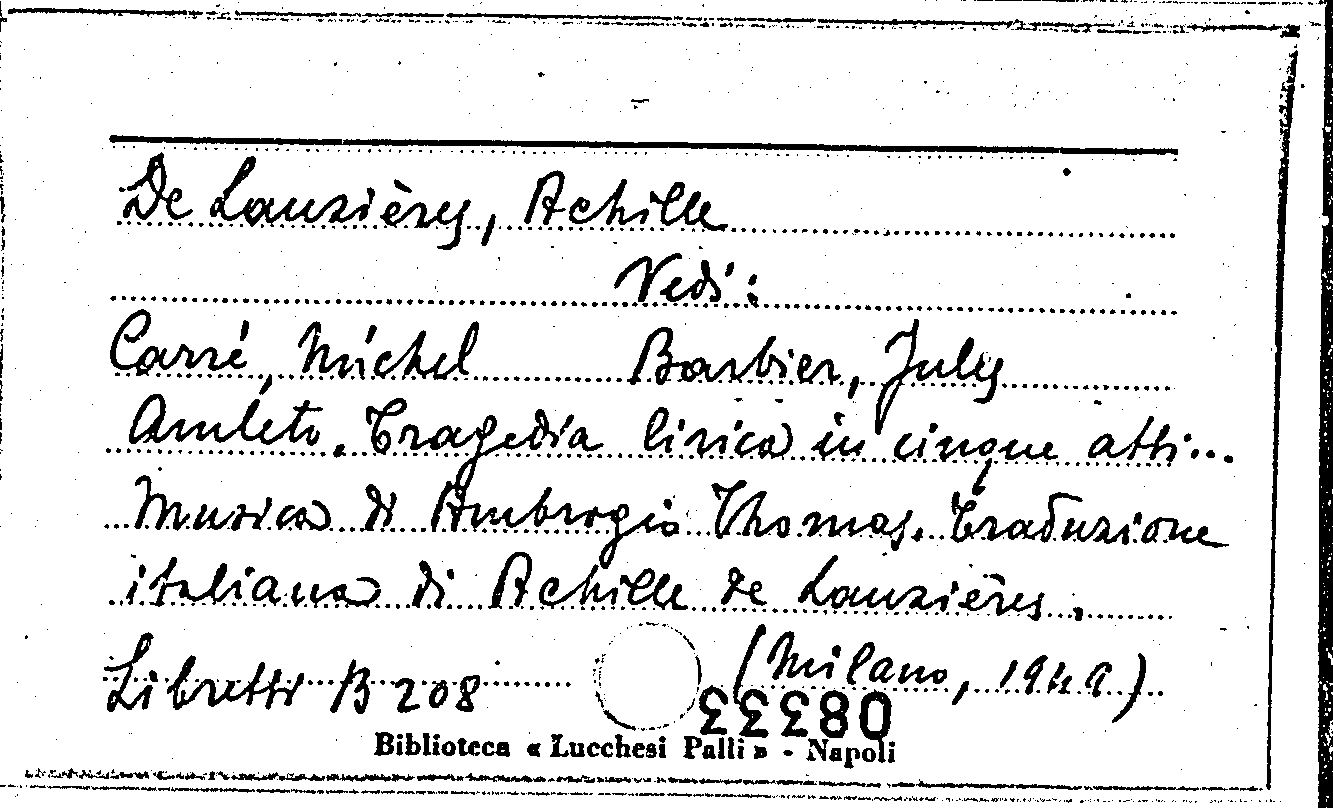 De Lauzières, Achille
Vedi:
Carré, Michel Barbier, Jules
Amleto. Tragedia lirica in cinque atti...
Musica di Ambrogio Thomas. Traduzione
italiana di Achille de Lauzières.
Libretti B 208 (Milano, 1949)
08333
Biblioteca « Lucchesi Palli » - Napoli